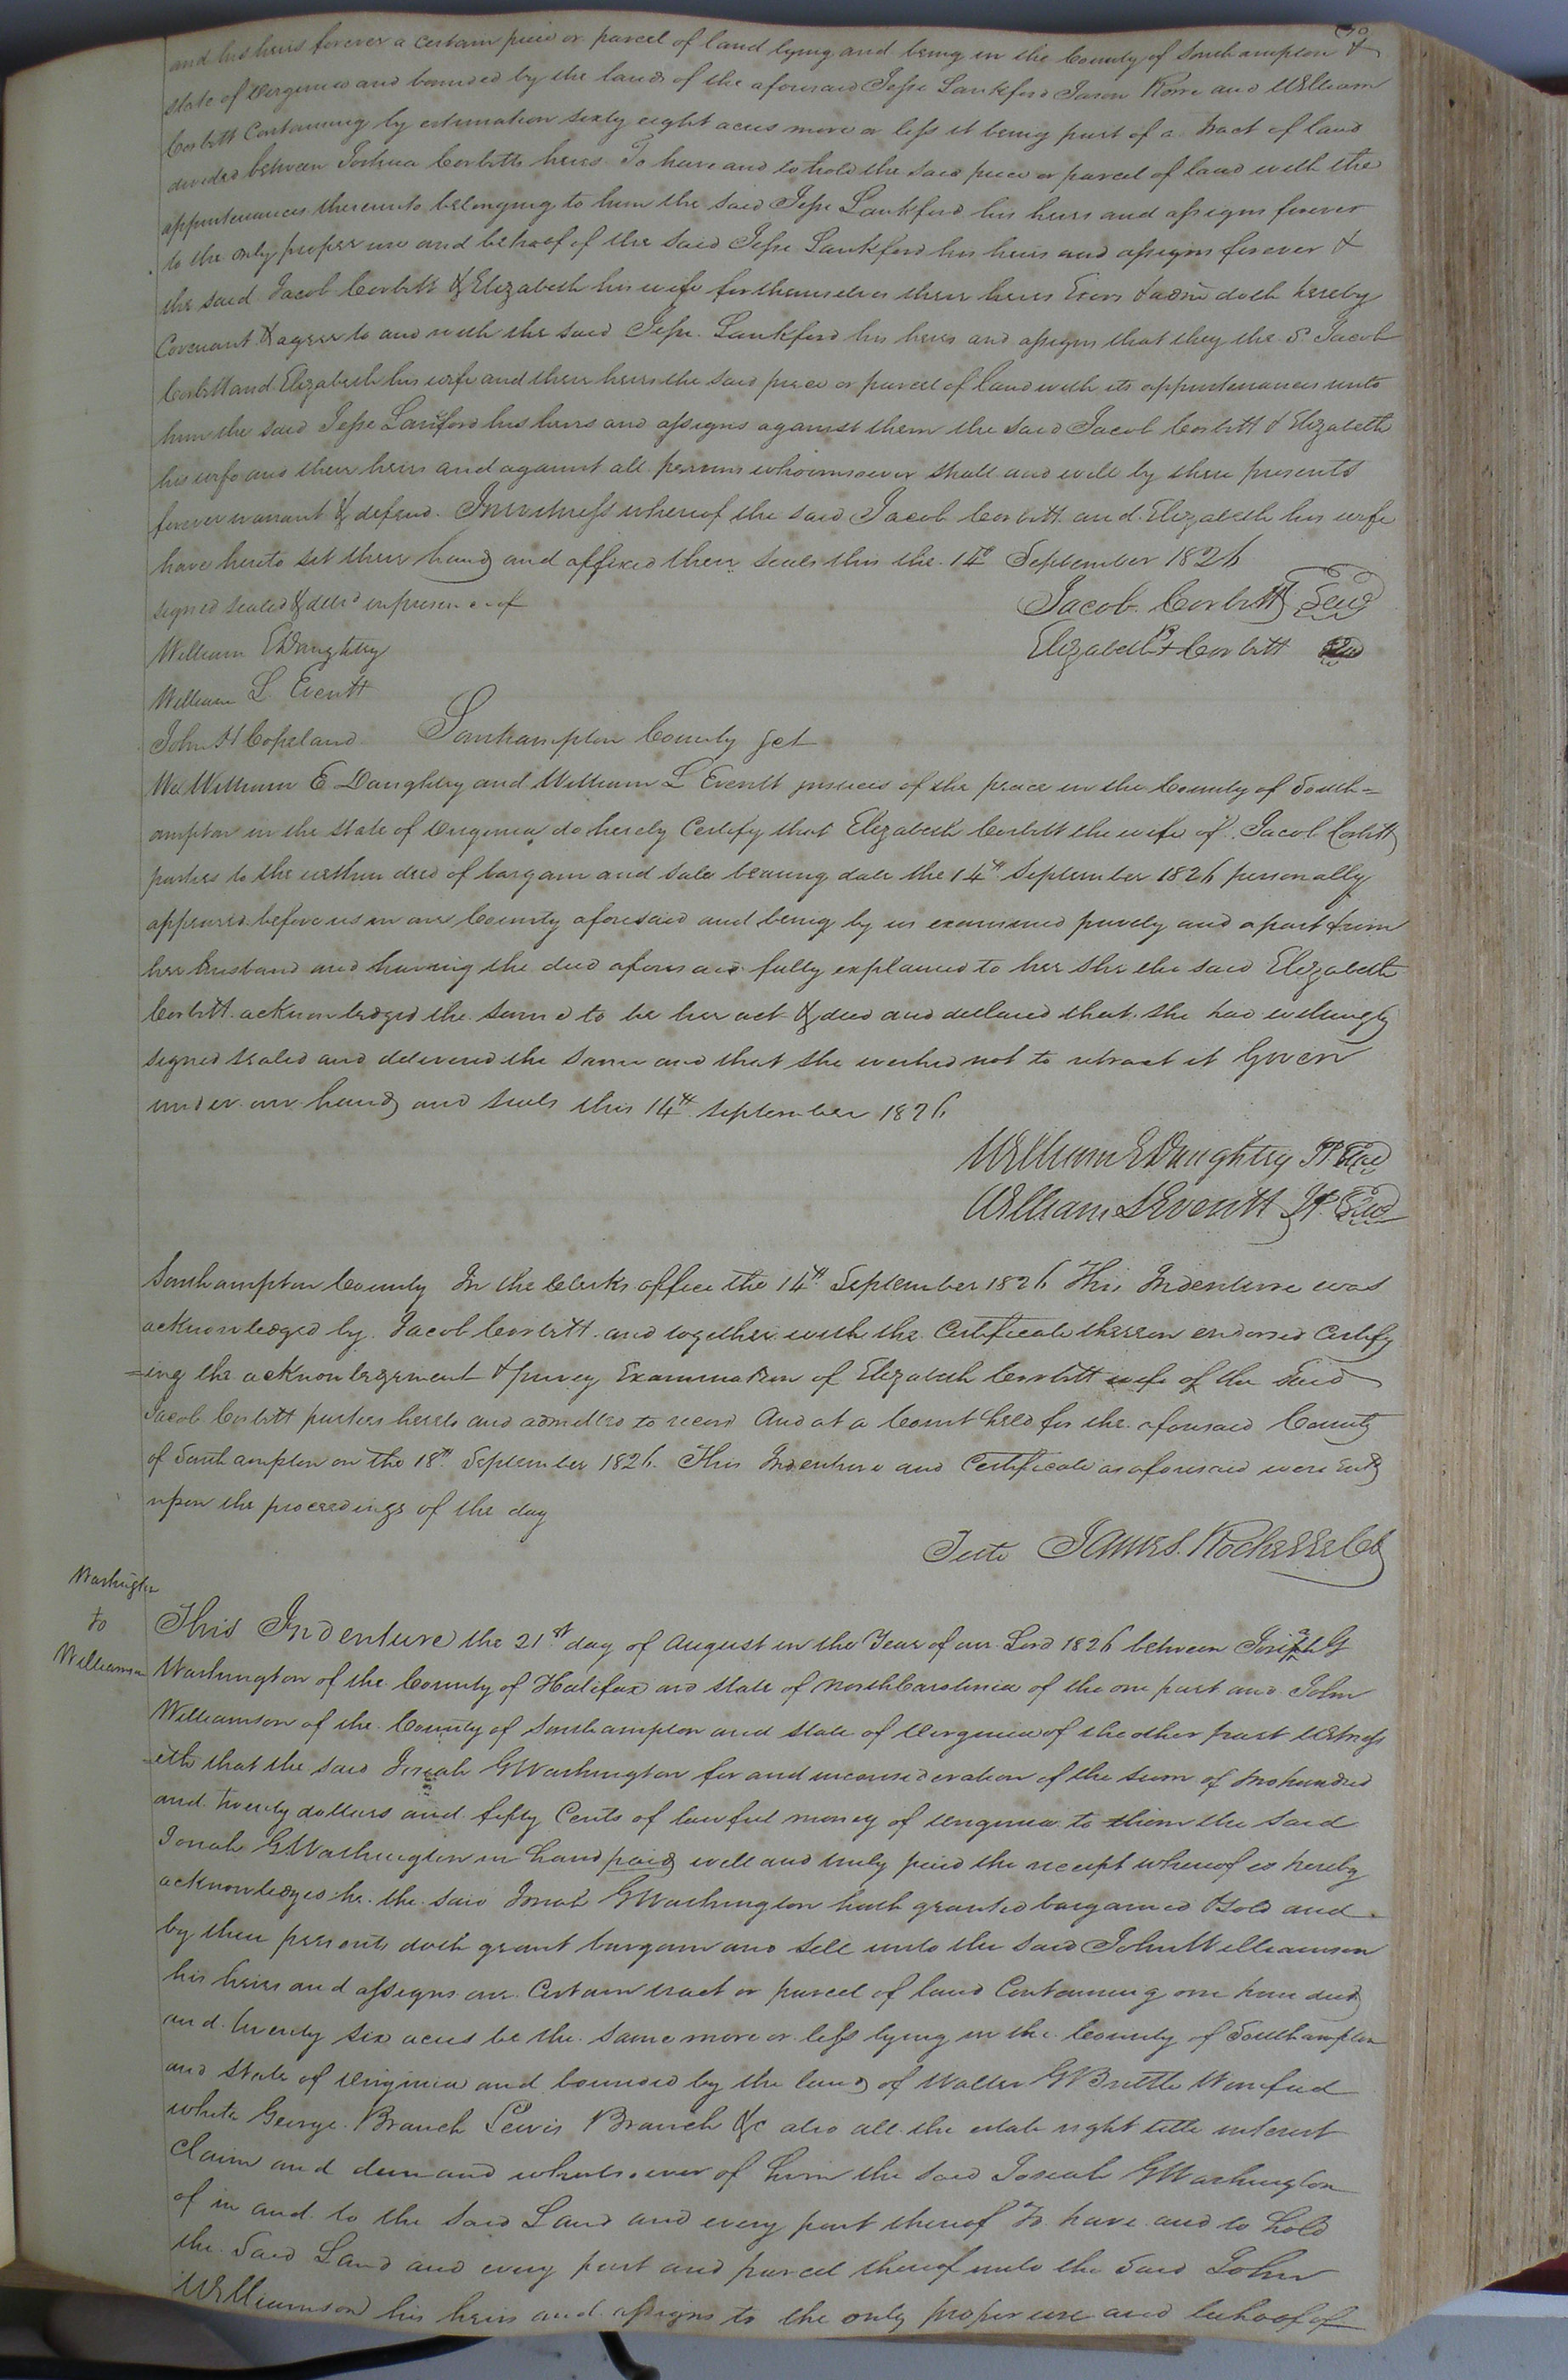 and his heirs forever a certain piece or parcel of land lying and being in the County of Southampton &
State of Virginia and bounded by the lands of the aforesaid Jesse Lankford Jason Rowe and William
Corbitt Containing by estimation sixty eight acres more or less it being part of a tract of land
divided between Joshua Corbitts heirs To have and to hold the said piece or parcel of land with the
appurtenances thereunto belonging to him the said Jesse Lankford his heirs and assigns forever
to the only proper use and behoof of the said Jesse Lankford his heirs and assigns forever &
the said Jacob Corbitt & Elizabeth his wife for themselves their heirs Exors & adm doth hereby
Covenant & agree to and with the said Jesse Lankford his heirs and assigns that they the Sd Jacob
Corbitt and Elizabeth his wife and their heirs the said piece or parcel of land with its appurtenances unto
him the said Jesse Lankford his heirs and assigns against them the said Jacob Corbitt & Elizabeth
his wife and their heirs and against all persons whomsoever shall and will by these presents
forever warrant & defend. In witness whereof the said Jacob Corbitt and Elizabeth his wife
have hereto set their hands and affixed their seals this the 14th September 1826
signed sealed & deld in presence of Jacob Corbitt Seal
William E Daughtry Elizabeth + Corbitt Seal
William L. Everitt
John H Copeland Southampton County Sct
We William E Daughtry and William L Everitt justices of the peace in the County of South=
ampton in the State of Virginia do hereby Certify that Elizabeth Corbitt the wife of Jacob Corbitt
parties to the within deed of bargain and sale bearing date the 14th September 1826 personally
appeared before us in our County aforesaid and being by us examined privily and apart from
her husband and having the deed aforesaid fully explained to her she the said Elizabeth
Corbitt acknowledged the same to be her act & deed and declared that she had willingly
signed sealed and delivered the same and that she wished not to retract it Given
under our hands and seals this 14th September 1826
William E Daughtry JP Seal
William L Everitt JP. Seal
Southampton County In the Clerks office the 14th September 1826 This Indenture was
acknowledged by Jacob Corbitt and together with the Certificate thereon endorsed Certify
=ing the acknowlegement & privy Examination of Elizabeth Corbitt wife of the said
Jacob Corbitt parties hereto and admitted to record And at a Court held for the aforesaid County
of Southampton on the 18th September 1826 This Indenture and Certificate as aforesaid were Entd
upon the proceedings of the day
Teste James Rochelle Clk
Washington
to
Williamson
This Indenture the 21st day of August in the Year of our Lord 1826 between Josiah G
Washington of the County of Halifax and state of North Carolinia of the one part and John
Williamson of the County of Southampton and state of Virginia of the other part Witness
=eth that the said Josiah G Washington for and in consideration of the sum of two hundred
and twenty dollars and fifty Cents of lawful money of Virginia to him the said
Josiah G Washington in hand paid well and truly paid the receipt whereof is hereby
acknowledged he the said Josiah G Washington hath granted bargained & sold and
by these presents doth grant bargain and sell unto the said John Williamson
his heirs and assigns one Certain tract or parcel of land Containing one hundred
and twenty six acres be the same more or less lying in the County of Southampton
and State of Virginia and bounded by the lands of Walter G Brittle Winefred
white George Branch Lewis Branch &c also all the estate right title interest
Claim and demand whatsoever of him the said Josiah G Washington
of in and to the said Land and every part thereof To have and to hold
the Said Land and every part and parcel thereof unto the Said John
Williamson his heirs and assigns to the only proper use and behoof of